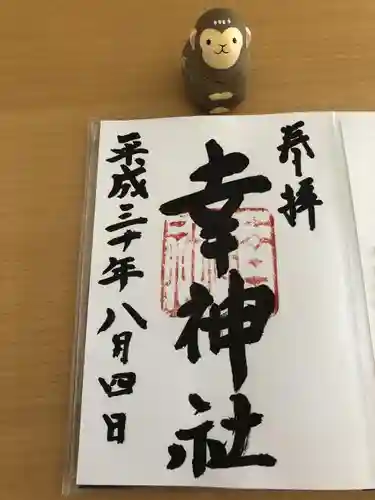 奉拝
幸神社
平成三十年八月四日